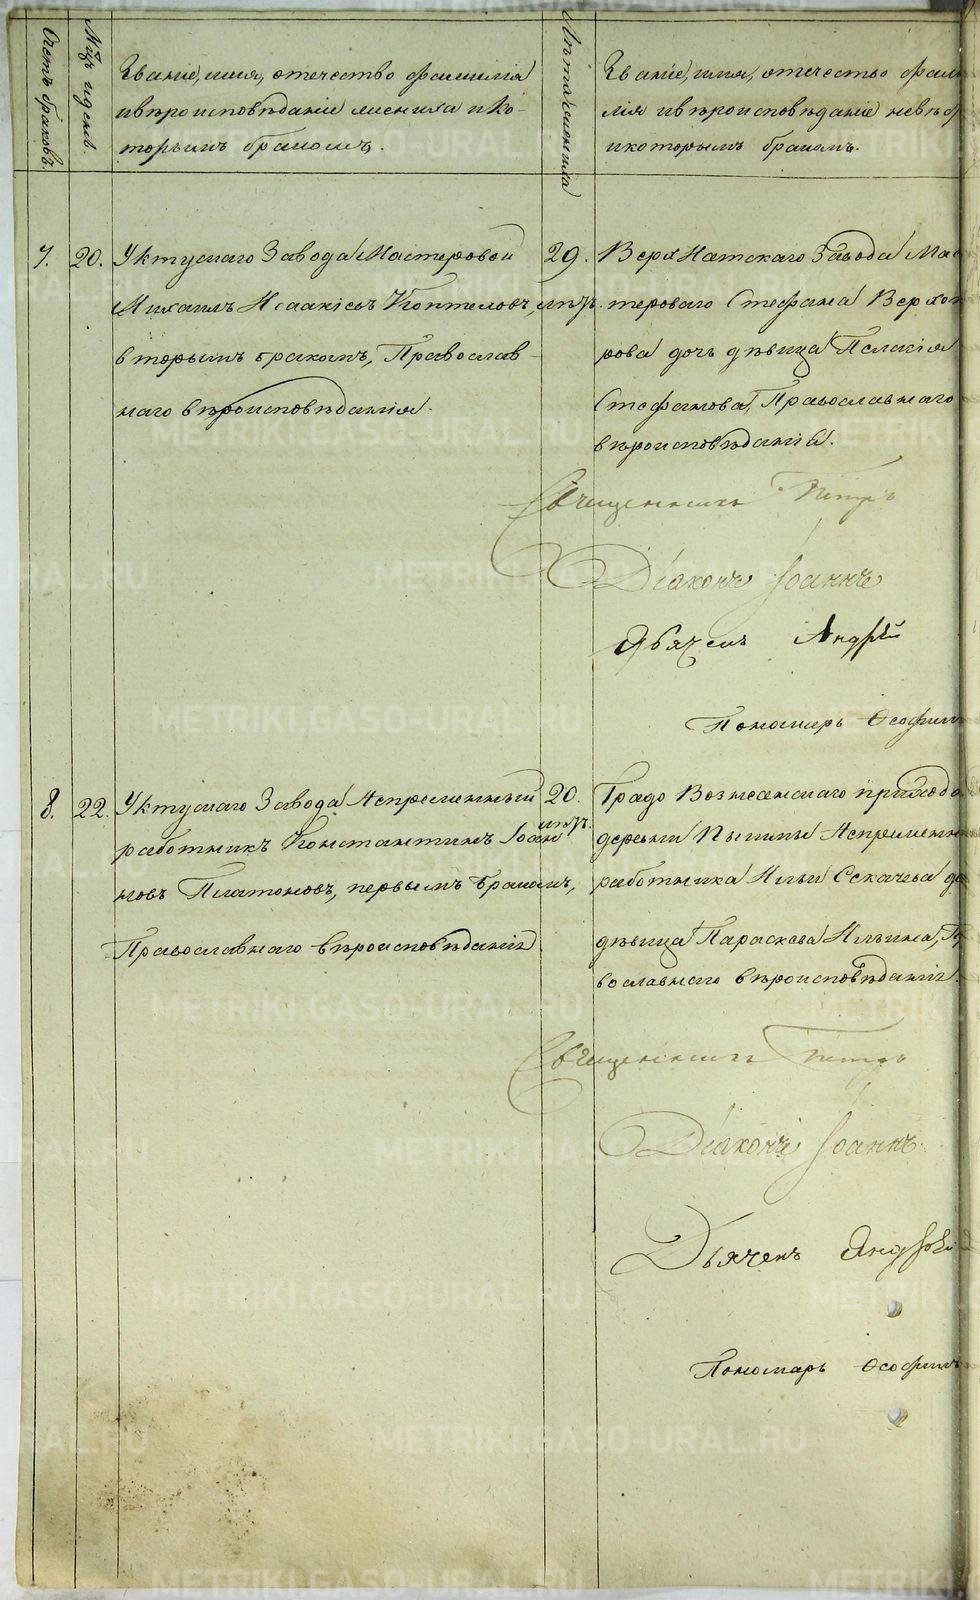 Счетъ браковъ.
М-цъ и день
Званіе, имя, отечество фамилія
и вѣроисповѣданіе жениха и ко-
торымъ бракомъ.
Лѣта жениха
Званіе, имя, отечество фами
лія и вѣроисповѣданіе невѣс
и которымъ бракомъ.
7.
20.
Уктускаго Завода Мастеровой
Михаилъ Исаакіевъ Коптеловъ,
вторымъ бракомъ, Православ-
наго вѣроисповѣданія.
29.
Верхъ Исетскаго Завода Мас
тероваго Стефана
рова дочь дѣвица Пелагія
Стефанова, Православнаго
вѣроисповѣданія.
Священникъ Петръ
Діаконъ Іоаннъ
Дьячекъ Андрей
Пономарь Ѳеофил
8.
22.
Уктускаго Завода Непремѣнный
работникъ Константинъ Іоан
новъ Платоновъ, первымъ бракомъ,
Православнаго вѣроисповѣданія.
20.
Градо Вознесенскаго прихода
деревни Пышмы Непремѣнн
работника Ильи Секачева до
дѣвица Параскева Ильина, Пр
вославнаго вѣроисповѣданія.
Священникъ Петръ
Діаконъ Іоаннъ
Дьячекъ Андрей
Пономарь Ѳеофилъ
METRIKI.GASO-URAL.RU